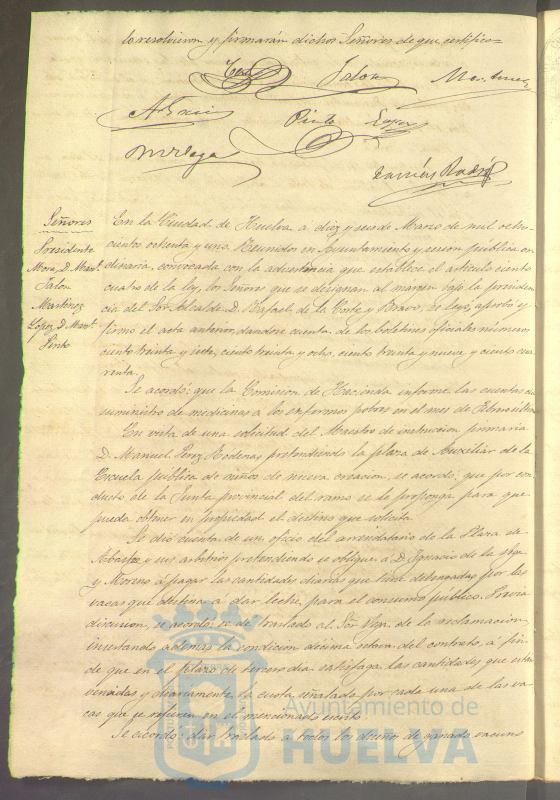 lo resolvieron y firmarán dichos Señores de que certifico=
Jalon
Martinez
Pinto
Señores
Presidente
Mora, D. Manl.
Jalon
Martinez
Lopez, D. Manl.
Pinto
En la Ciudad de Huelva a diez y seis de Marzo de mil ocho-
cientos ochenta y uno. Reunidos en Ayuntamiento y sesion pública or-
dinaria, convocada con la advertencia que establece el artículo ciento
cuatro de la ley, los Señores que se designan al margen bajo la presiden-
cia del Sor. Alcalde D. Rafael de la Corte y Bravo, se leyó, aprobó y
firmó el acta anterior, dandose cuenta de los boletines oficiales números
ciento treinta y siete, ciento treinta y ocho, ciento treinta y nueve y ciento cua-
renta.
Se acordó: que la Comision de Hacienda informe las cuentas de
suministro de medicinas a los enfermos pobres en el mes de Febrero último
En vista de una solicitud del Maestro de instruccion primaria
D. Manuel Perez Rodenas pretendiendo la plaza de Auxiliar de la
Escuela pública de niños de nueva creacion, se acordó: que por con-
ducto de la Junta provincial del ramo se le proponga para que
pueda obtener en propiedad el destino que solicita.
Se dió cuenta de un oficio del arrendatario de la Plaza de
Abastos y sus arbitrios pretendiendo se obligue á D. Ignacio de la
y Moreno á pagar las cantidades diarias que tiene devengadas por las
vacas que destina á dar leche para el consumo público. Previa
discusion, se acordó: se dé traslado al Sor. de la reclamacion,
insertando ademas la condicion décima octava del contrato, á fin
de que en el plazo de tercero dia satisfaga las cantidades que esta
vencidas y diariamente la cuota señalada por cada una de las va-
cas que se refieren en el mencionado escrito
Se acordó: dar traslado a todos los dueños de ganado vacuno
Ayuntamiento de
HUELVA